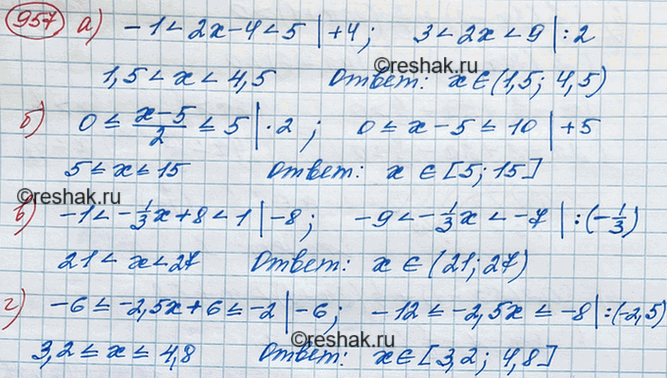 957 а) -1 < 2x-4 < 5 |+4; 3 < 2x < 9 |:2
©reshak.ru
1,5 < x < 4,5 Ответ: x∈(1,5; 4,5)
б) 0 ≤ \frac{x-5}{2} ≤ 5 |·2; 0 ≤ x-5 ≤ 10 |+5
5 ≤ x ≤ 15 Ответ: x ∈ [5; 15]
©reshak.ru
в) -1 < -\frac{1}{3}x+8 < 1 |-8; -9 < -\frac{1}{3}x < -7 |:(-\frac{1}{3})
21 < x < 27 Ответ: x ∈ (21; 27)
г) -6 ≤ -2,5x+6 ≤ -2 |-6; -12 ≤ -2,5x ≤ -8 |:(-2,5)
©reshak.ru
3,2 ≤ x ≤ 4,8 Ответ: x∈[3,2; 4,8]